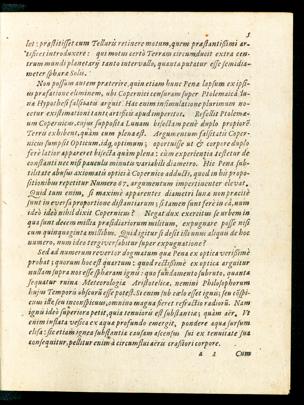 3
let: præstitisset cum Telluris retinere motum, quem præstantissimi ar-
tifices introduxere: qui motus certo Terram circumducit extra cen-
trum mundi planetarij tanto intervallo, quanta putatur esse semidia-
meter sphæræ Solis.
Non possum autem præterire, quin etiam hunc Penæ lapsum ex ip-
sius præfatione eliminem, ubi Copernici censuram super Ptolemaica Lu-
na Hypothesi falsitatis arguit. Hac enim insimulatione plurimum no-
cetur existimationi tanti artificis apud imperitos. Refellit Ptolemæ-
um Copernicus, cujus suppositâ Lunam bisectam penè duplò propiorem
Terris exhibent, quàm cum plena est. Argumentum falsitatis Coper-
nicus sumpsit Opticum, idq; optimum; oportuisse ut & corpore duplo
ferè latior appareret bisecta quàm plena: cùm experientia testetur de
constanti nec nisi paucula minuta variabili diametro. Hic Pena sub-
tilitate abusus axiomatis optici à Copernico adducti, quod in his propo-
sitionibus repetitur Numero 67, argumentum impertinenter elevat.
Quid tum enim, si maximè apparentes diametri luna non præcisè
sunt in eversa proportione distantiarum; si tamen sunt ferè in eâ, num
ideò nihil dixit Copernicus? Negat dux exercitus se urbem in
qua sunt decem millia præsidiariorum militum, expugnare posse nisi
cum quinquaginta millibus. Quid igitur si desit illi unus aliquis de hoc
numero, num ideo tergiversabitur super expugnatione?
Sed ad numerum revertor dogmatum quæ Pena ex optica verissimè
probat; quorum hoc est quartum: quod rectissimè ex optica arguitur
nullam supra nos esse sphæram ignis: quo fundamento subruto, quanta
sequatur ruina Meteorologiæ Aristotelicæ, nemini Philosophorum
hujus Temporis obscurū esse potest. Si enim sub cœlo esset ignis; seu cōspi-
cuus ille seu inconspicuus, omnino magna fieret refractio radiorū. Nam
ignis ideò superiora petit, quia tenuioris est substantiæ; quàm aër. Vt
enim inflata vesica ex aqua profundo emergit, pondere aquæ sursum
elisa: sic etiam ignea substantia causam ascensus sui ex tenuitate sua
consequitur, pellitur enim à circumfusi aëris crassiori corpore.
a 2 Cum